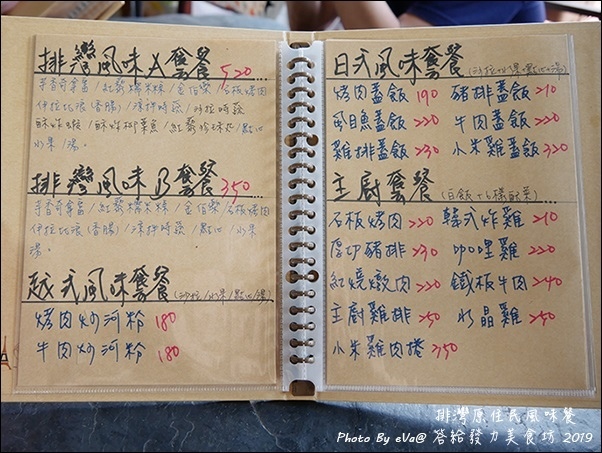 排灣風味A套餐 520
手香奇拿富/紅藜欉米粽/金佰樂/石板烤肉
伊拉比浪(香腸)/涼拌時蔬/沙拉時蔬
酥炸蝦/酥炸柳葉魚/紅藜珍珠丸/點心
水果/湯。
排灣風味B套餐 350
手香奇拿富/紅藜欉米粽/金佰樂/石板烤肉
伊拉比浪(香腸)/涼拌時蔬/點心/水果
湯。
越式風味套餐(沙拉/水果/點心/湯)
烤肉炒河粉 180
牛肉炒河粉 180
日式風味套餐
(沙拉+水果+點心+湯)
烤肉蓋飯 190 豬排蓋飯 210
虱目魚蓋飯 220 牛肉蓋飯 220
雞排蓋飯 230 小米雞蓋飯 320
主廚套餐(白飯+6樣配菜)
石板烤肉 220 韓式炸雞 210
厚切豬排 230 咖哩雞 220
紅燒燉肉 220 鐵板牛肉 240
主廚雞排 250 水晶雞 250
小米雞肉捲 350
排灣原住民風味餐
Photo By eVa@ 答給發力美食坊 2019